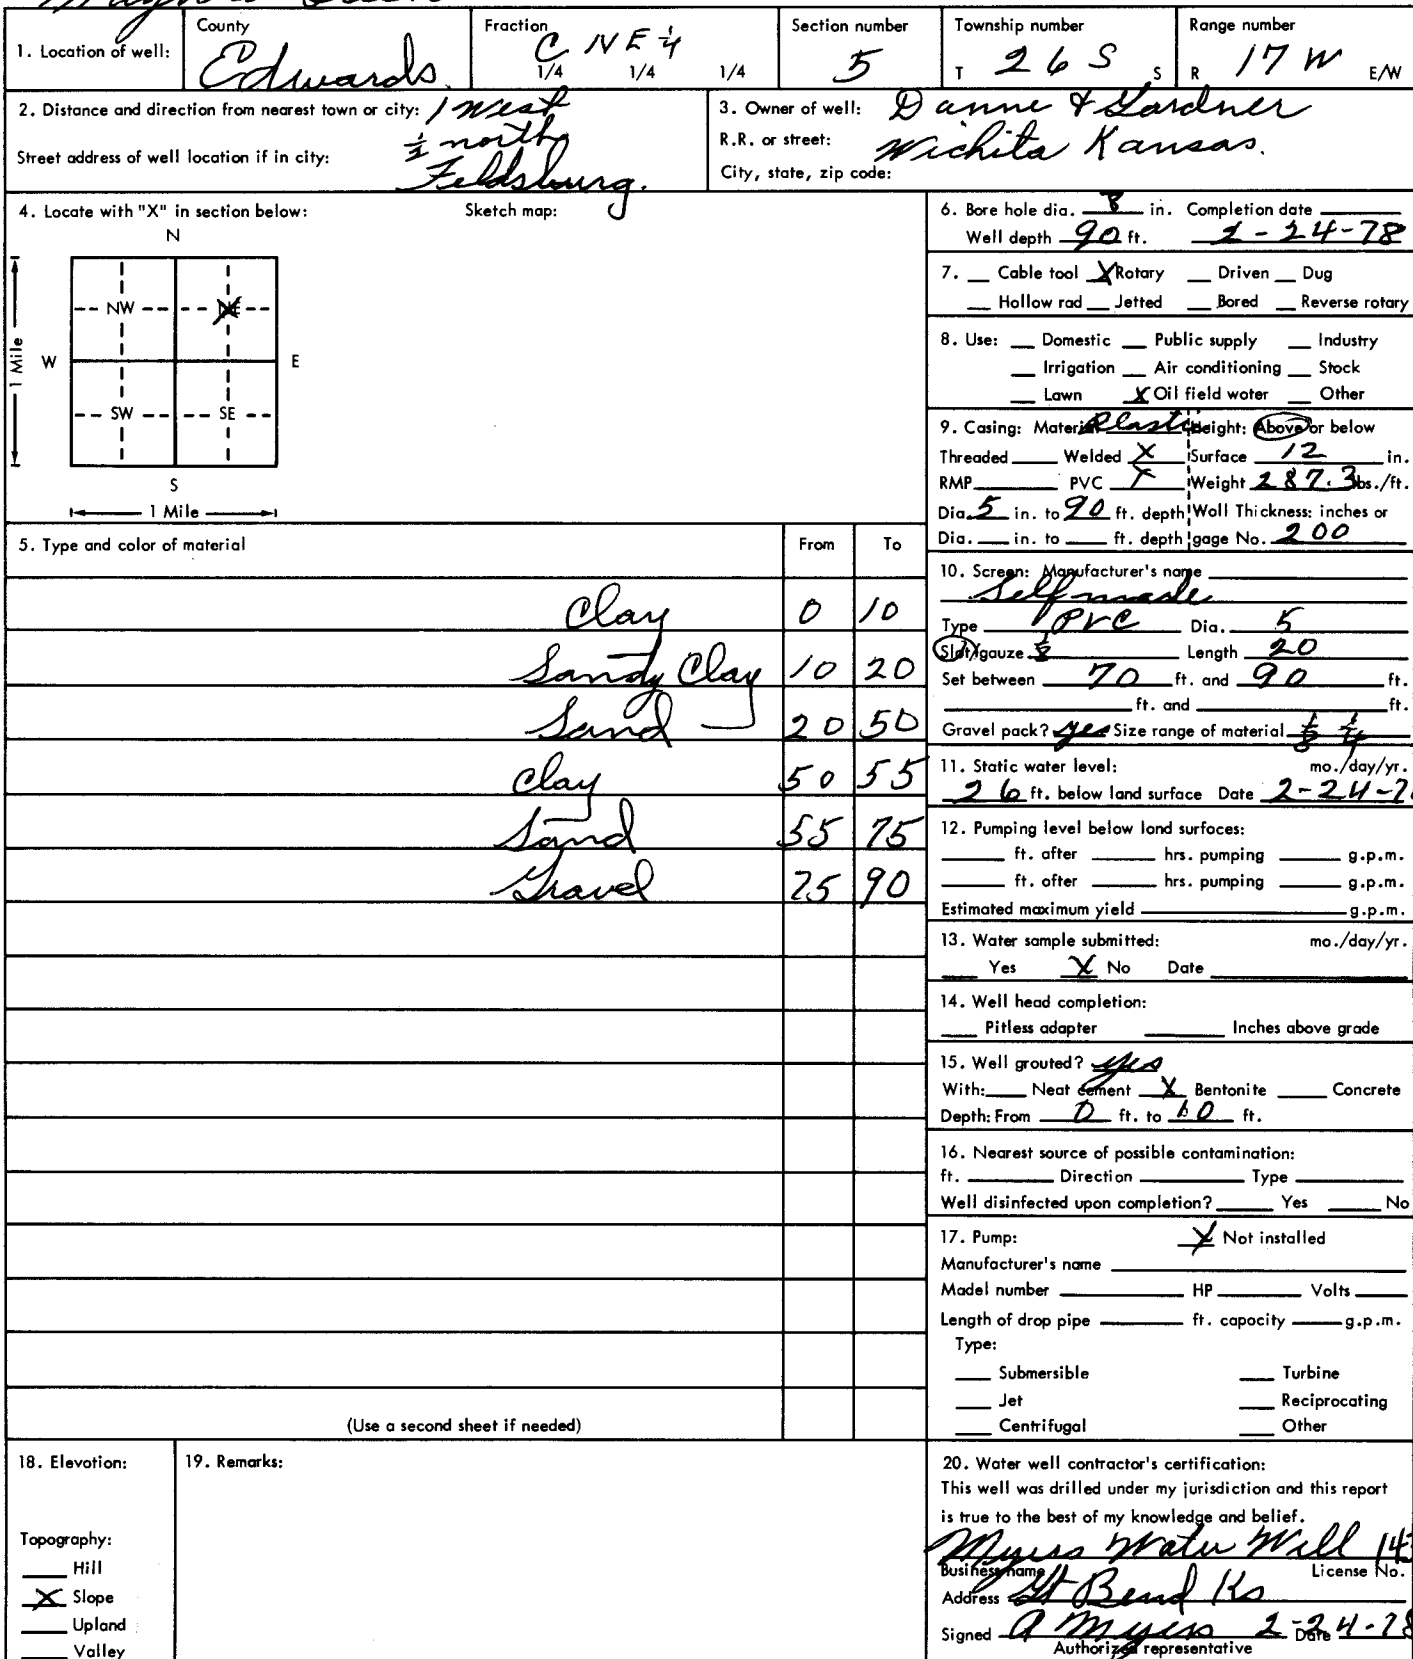 1. Location of well: County Edwards Fraction C NE 1/4 1/4 1/4 1/4 Section number 5 Township number T 26 S S Range number R 17 W E/W
2. Distance and direction from nearest town or city: 1 West
1/2 north
Street address of well location if in city: Feldsburg.
3. Owner of well: Danne & Gardner
R.R. or street: Wichita Kansas.
City, state, zip code:
4. Locate with "X" in section below: Sketch map:
N
NW NE
W E
1 Mile
SW SE
S
1 Mile
5. Type and color of material From To
Clay 0 10
Sandy Clay 10 20
Sand 20 50
Clay 50 55
Sand 55 75
Gravel 75 90
(Use a second sheet if needed)
6. Bore hole dia. 8 in. Completion date
Well depth 90 ft. 2-24-78
7. Cable tool X Rotary Driven Dug
Hollow rad Jetted Bored Reverse rotary
8. Use: Domestic Public supply Industry
Irrigation Air conditioning Stock
Lawn X Oil field water Other
9. Casing: Material Plastic Height: Above or below
Threaded Welded X Surface 12 in.
RMP PVC X Weight 287.3 lbs./ft.
Dia. 5 in. to 90 ft. depth Wall Thickness: inches or
Dia. in. to ft. depth gage No. 200
10. Screen: Manufacturer's name
Self made
Type PVC Dia. 5
Slot/gauze 1/8 Length 20
Set between 70 ft. and 90 ft.
ft. and ft.
Gravel pack? yes Size range of material 1/8 1/4
11. Static water level: mo./day/yr.
26 ft. below land surface Date 2-24-7
12. Pumping level below land surfaces:
ft. after hrs. pumping g.p.m.
ft. after hrs. pumping g.p.m.
Estimated maximum yield g.p.m.
13. Water sample submitted: mo./day/yr.
Yes X No Date
14. Well head completion:
Pitless adapter Inches above grade
15. Well grouted? yes
With: Neat cement X Bentonite Concrete
Depth: From 0 ft. to 10 ft.
16. Nearest source of possible contamination:
ft. Direction Type
Well disinfected upon completion? Yes No
17. Pump: X Not installed
Manufacturer's name
Model number HP Volts
Length of drop pipe ft. capacity g.p.m.
Type:
Submersible Turbine
Jet Reciprocating
Centrifugal Other
18. Elevation:
Topography:
Hill
X Slope
Upland
Valley
19. Remarks:
20. Water well contractor's certification:
This well was drilled under my jurisdiction and this report
is true to the best of my knowledge and belief.
Myers Water Well 143
Business name License No.
Address Gt Bend Ks
Signed A Myers 2-24-78 Date
Authorized representative